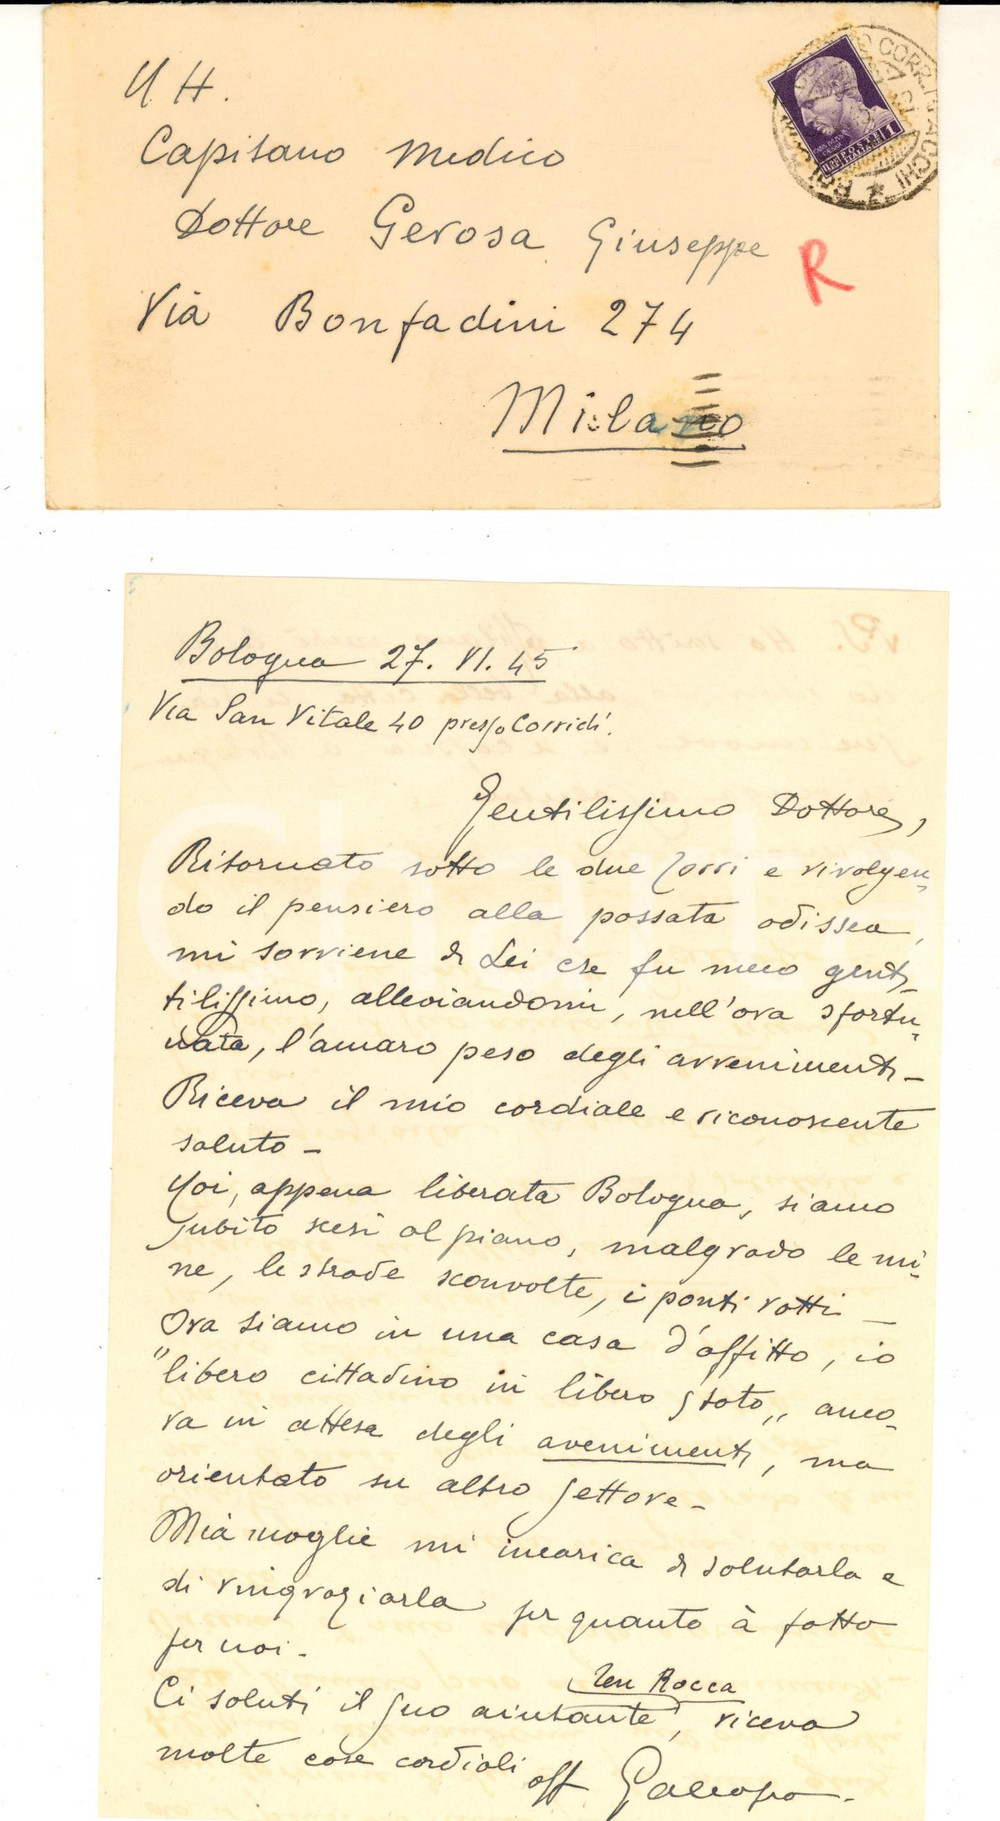 U H.
Capitano Medico
Dottore Gerosa Giuseppe
R
Via Bonfadini 274
Milano
Bologna 27. VI. 45
Via San Vitale 40 presso
Gentilissimo Dottore,
Ritornato sotto le due Torri e rivolgen-
do il pensiero alla passata odissea,
mi sovviene di Lei che fu meco genti-
tilissimo, alleviandomi, nell'ora sfortu-
nata, l'amaro peso degli avvenimenti -
Riceva il mio cordiale e riconoscente
saluto -
Noi, appena liberata Bologna, siamo
subito scesi al piano, malgrado le mi-
ne, le strade sconvolte, i ponti rotti -
Ora siamo in una casa d'affitto, io
"libero cittadino in libero stato„ anco-
ra in attesa degli avenimenti, ma
orientato su altro settore -
Mia moglie mi incarica di salutarla e
di ringraziarla per quanto à fatto
per noi -
Ten Rocca
Ci saluti il suo aiutante, riceva
molte cose cordiali
aff